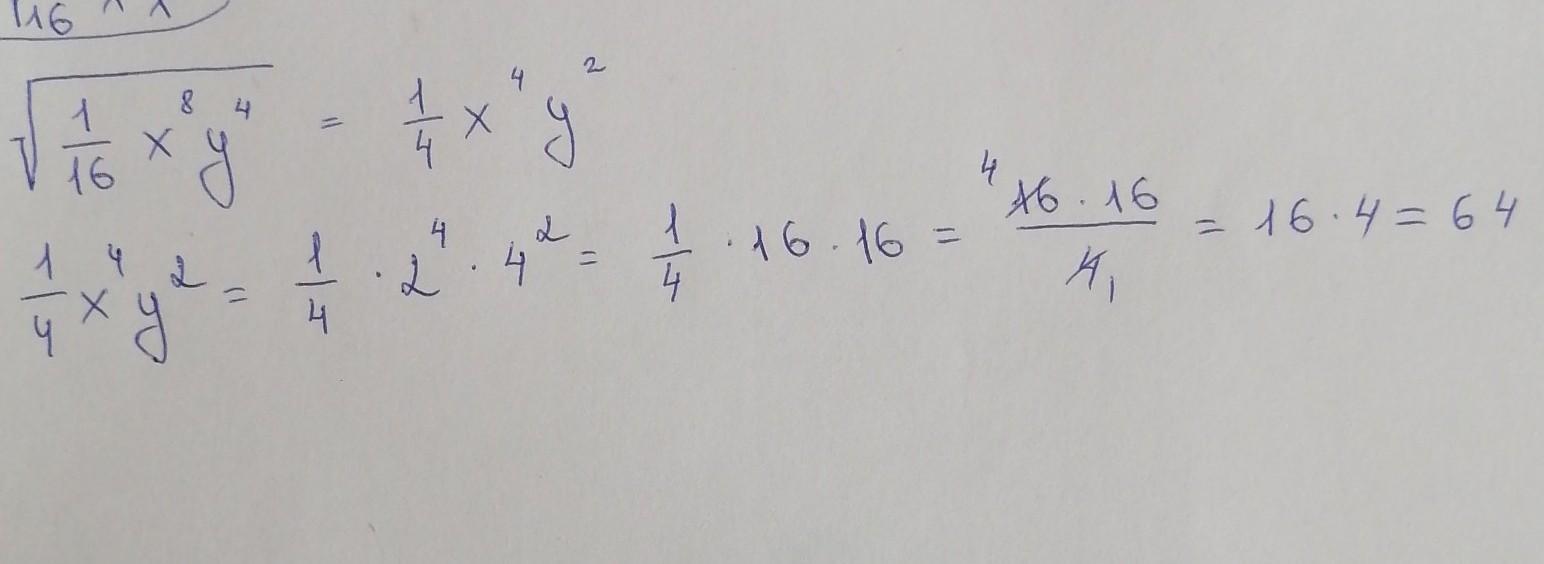 √16
√(1/16 x⁸y⁴) = 1/4 x⁴y²
1/4 x⁴y² = 1/4 · 2⁴ · 4² = 1/4 · 16 · 16 = ⁴16 · 16/4₁ = 16 · 4 = 64